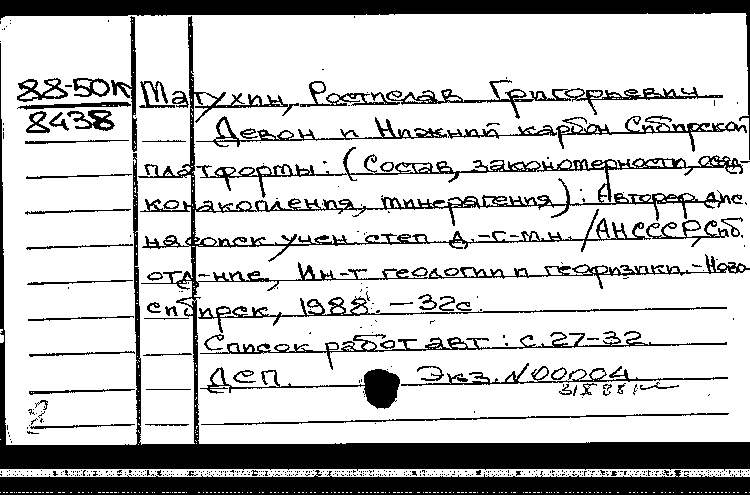 88-50К Матухин, Ростислав Григорьевич
8438 Девон и Нижний карбон Сибирской
платформы: (Состав, закономерности, осад-
конакопления, минерагения): Автореф. дис.
на соиск. учен. степ. д.-г.-м.н. /АН СССР, Сиб.
отд-ние, Ин-т геологии и геофизики.-Ново-
сибирск, 1988. - 32с.
Список работ авт.: с. 27-32.
ДСП. Экз. №00004.